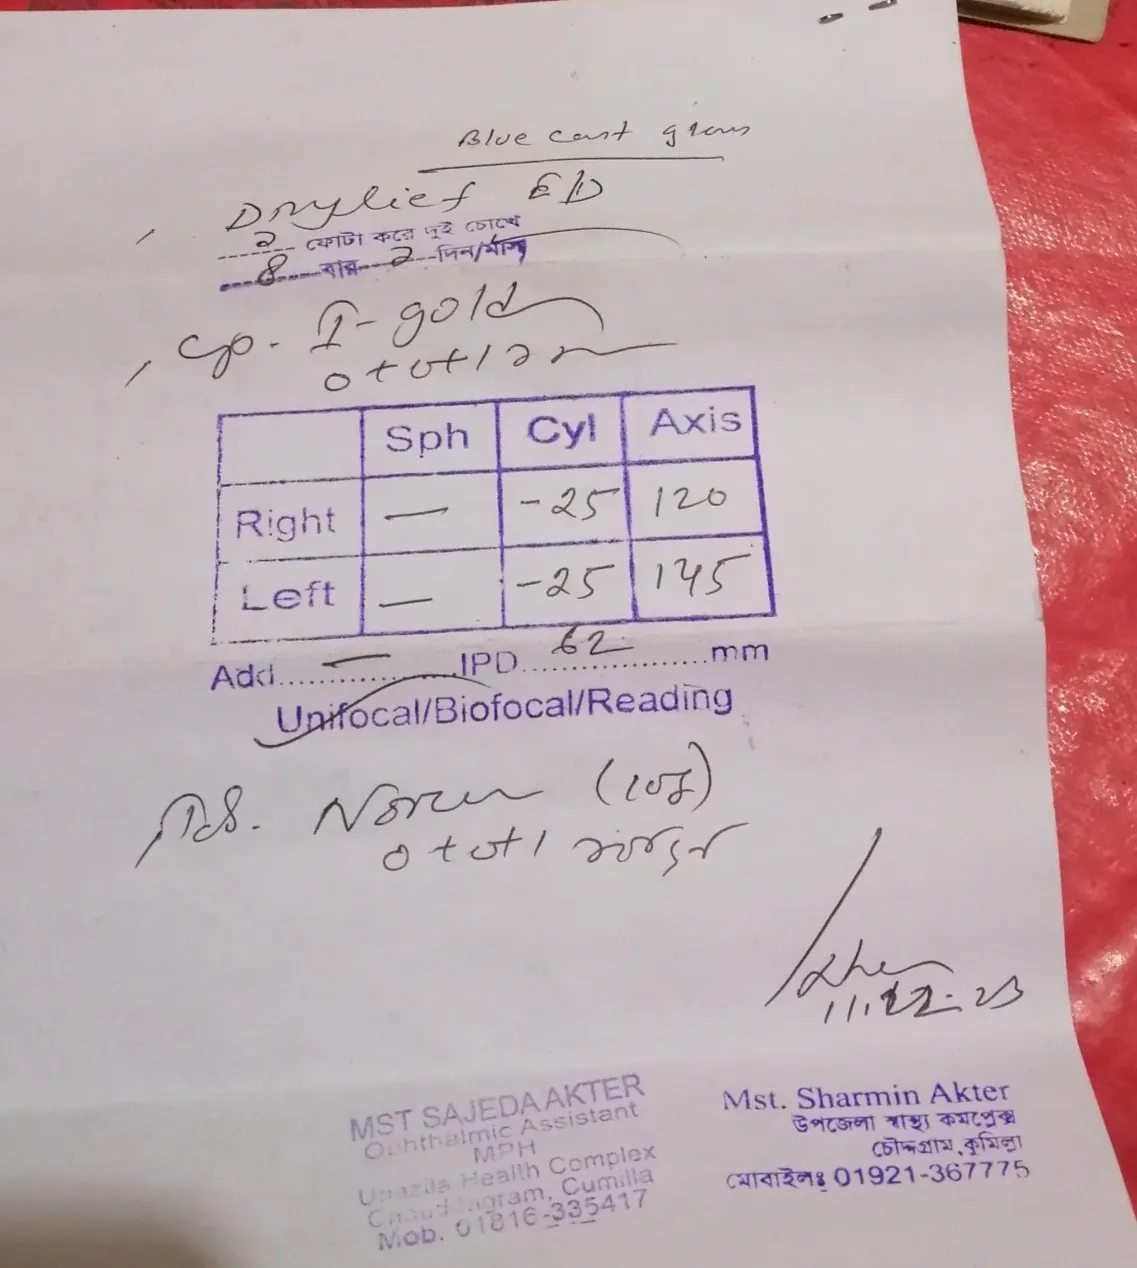 Blue cut glass
Drylief E/D
২ ফোটা করে দুই চোখে
৪ বার ২ দিন/মাস
Cap. I-gold
0+0+1
Sph Cyl Axis
Right — -25 120
Left — -25 145
Add....—....IPD....62....mm
Unifocal/Biofocal/Reading
(10টি)
0+0+1
11.12.23
MST SAJEDA AKTER
Ophthalmic Assistant
MPH
Upazila Health Complex
Chouddagram, Cumilla
Mob. 01816-335417
Mst. Sharmin Akter
উপজেলা স্বাস্থ্য কমপ্লেক্স
চৌদ্দগ্রাম, কুমিল্লা
মোবাইলঃ 01921-367775